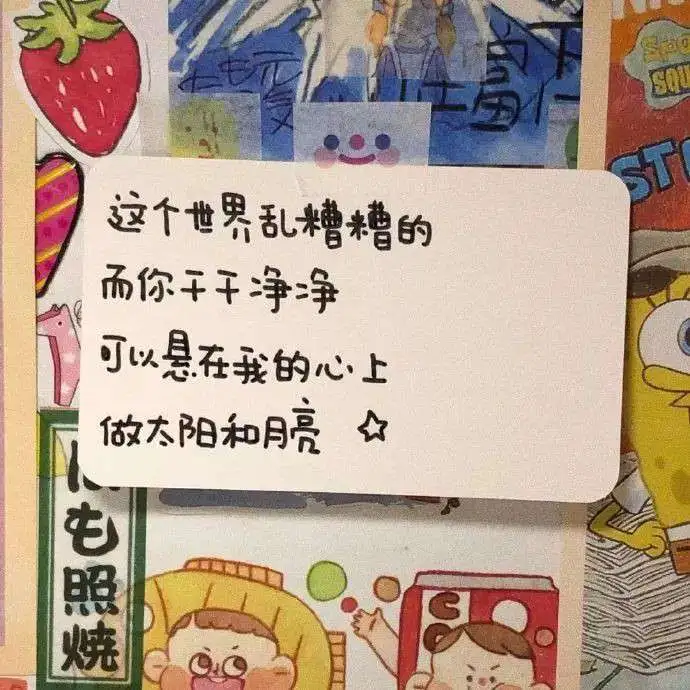 这个世界乱糟糟的
而你干干净净
可以悬在我的心上
做太阳和月亮 ☆
も照燒